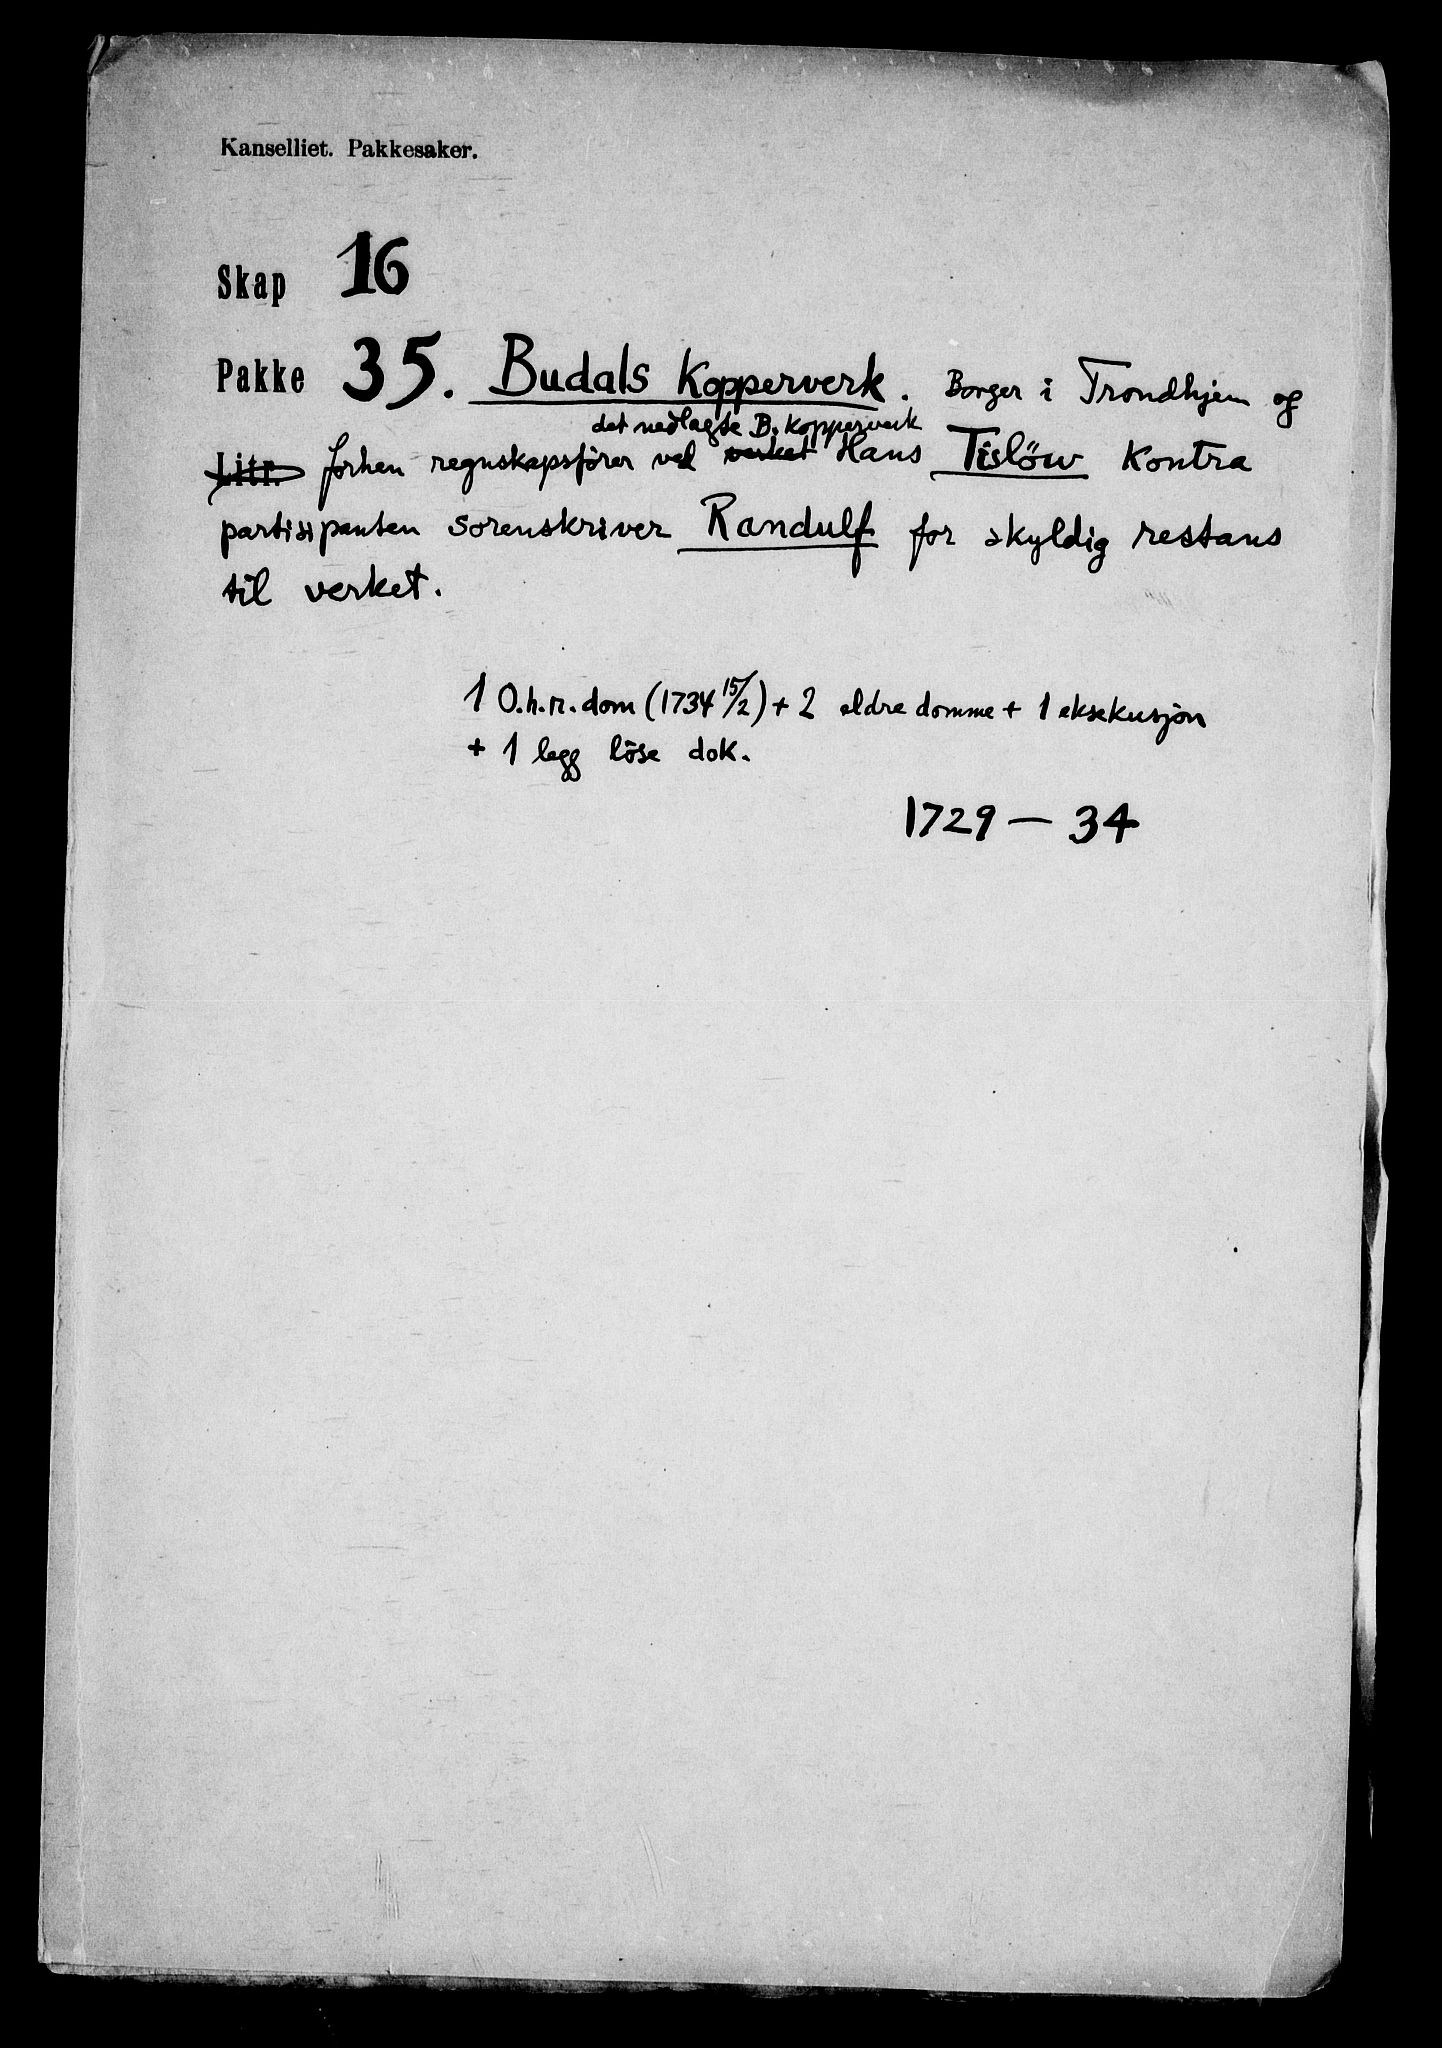 Kanselliet. Pakkesaker.
Skap 16
Pakke 35. Budals Kopperverk. Borger i Trondhjem og
det nedlagte B. kopperverk
Litr. forhen regnskapsfører ved verket Hans Tislöw Kontra
partisipanten sorenskriver Randulf for skyldig restans
til verket.
1 O.h.r. dom (1734 15/2) + 2 eldre domme + 1 eksekusjon
+ 1 legg löse dok.
1729 — 34